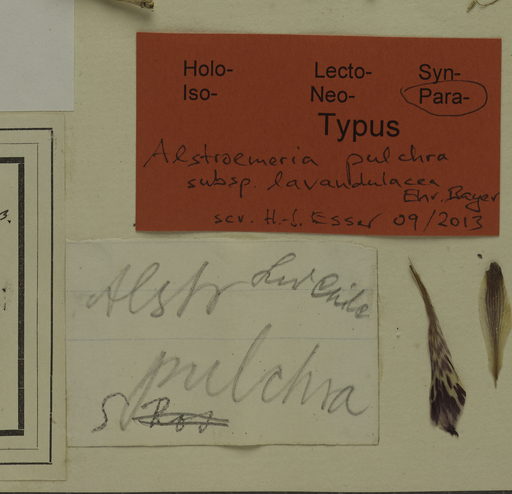 Holo- Lecto- Syn-
Iso- Neo- Para-
Typus
Alstroemeria pulchra
subsp. lavandulacea
Ehr. Bayer
scr. H.-J. Esser 09/2013
3.
Alstr
Chile
pulchra